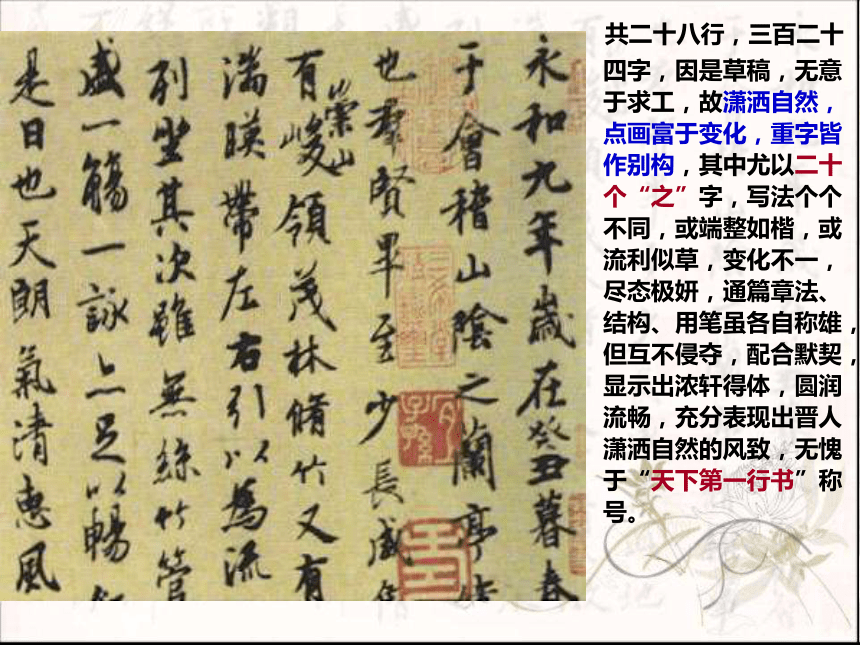 永和九年歲在癸丑暮春
于會稽山陰之蘭亭
也羣賢畢至少長咸
有崇山峻領茂林脩竹又有
湍暎帶左右引以為流
列坐其次雖無絲竹管
盛一觴一詠亦足以暢
是日也天朗氣清惠風
共二十八行，三百二十
四字，因是草稿，无意
于求工，故潇洒自然，
点画富于变化，重字皆
作别构，其中尤以二十
个“之”字，写法个个
不同，或端整如楷，或
流利似草，变化不一，
尽态极妍，通篇章法、
结构、用笔虽各自称雄，
但互不侵夺，配合默契，
显示出浓轩得体，圆润
流畅，充分表现出晋人
潇洒自然的风致，无愧
于“天下第一行书”称
号。